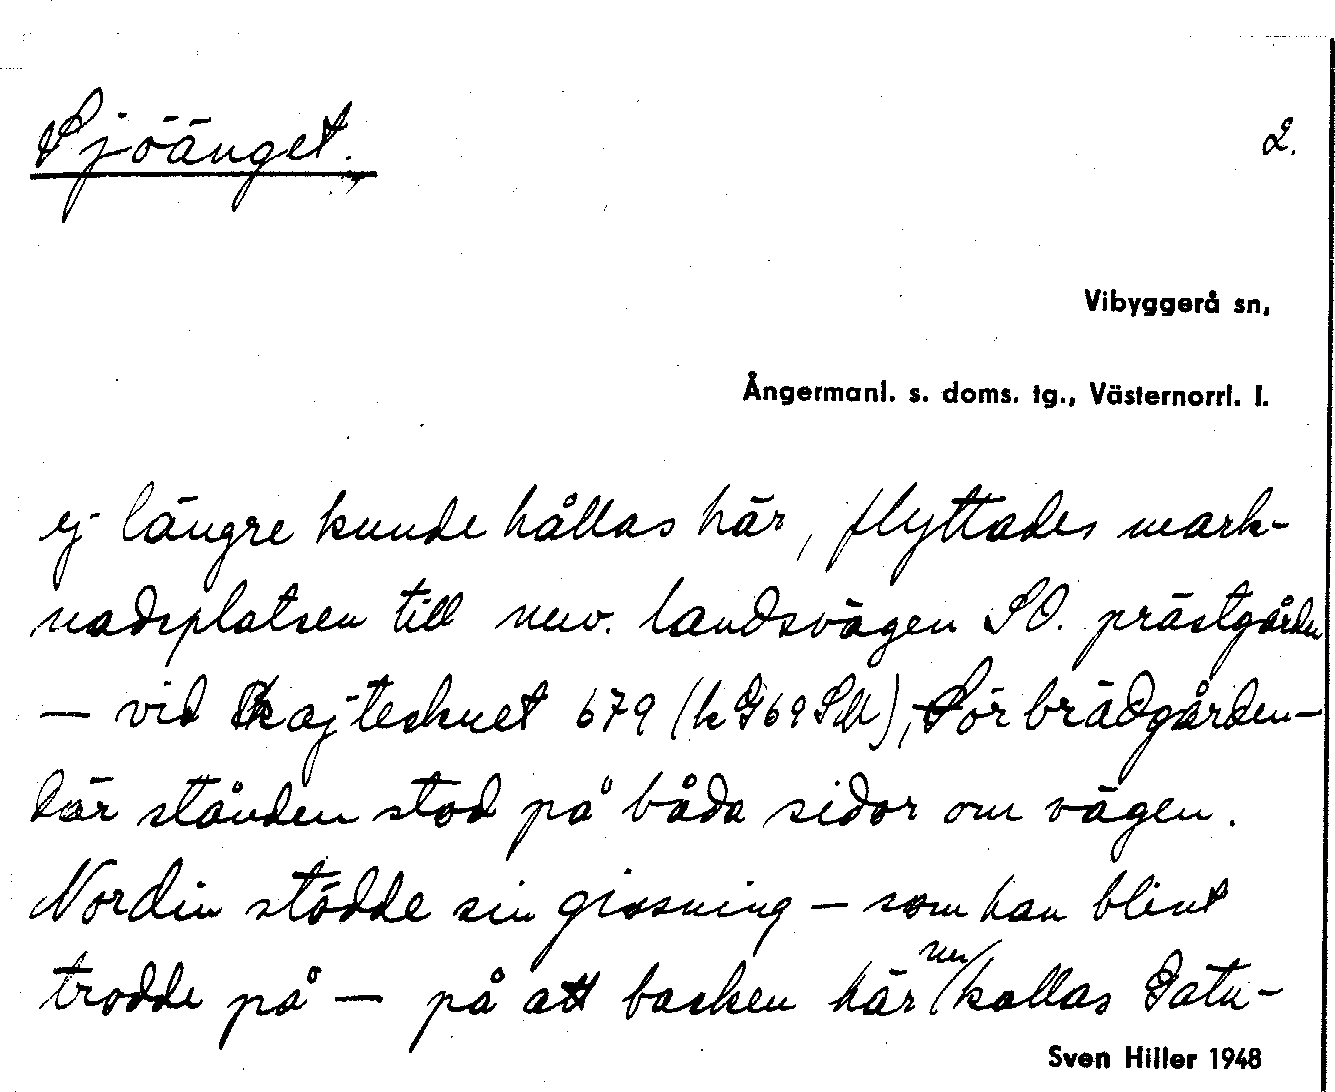 Sjöänget.
2.
Vibyggerå sn,
Ångermanl. s. doms. tg., Västernorrl. l.
ej längre kunde hållas här, flyttades mark-
nadsplatsen till nuv. landsvägen SO. prästgården
— vid kajtecknet 679 (k G69 SM), Sör brädgården—
där stånden stod på båda sidor om vägen.
Nordin stödde sin gissning — som han blint
trodde på — på att backen här nu kallas Gatu-
Sven Hiller 1948